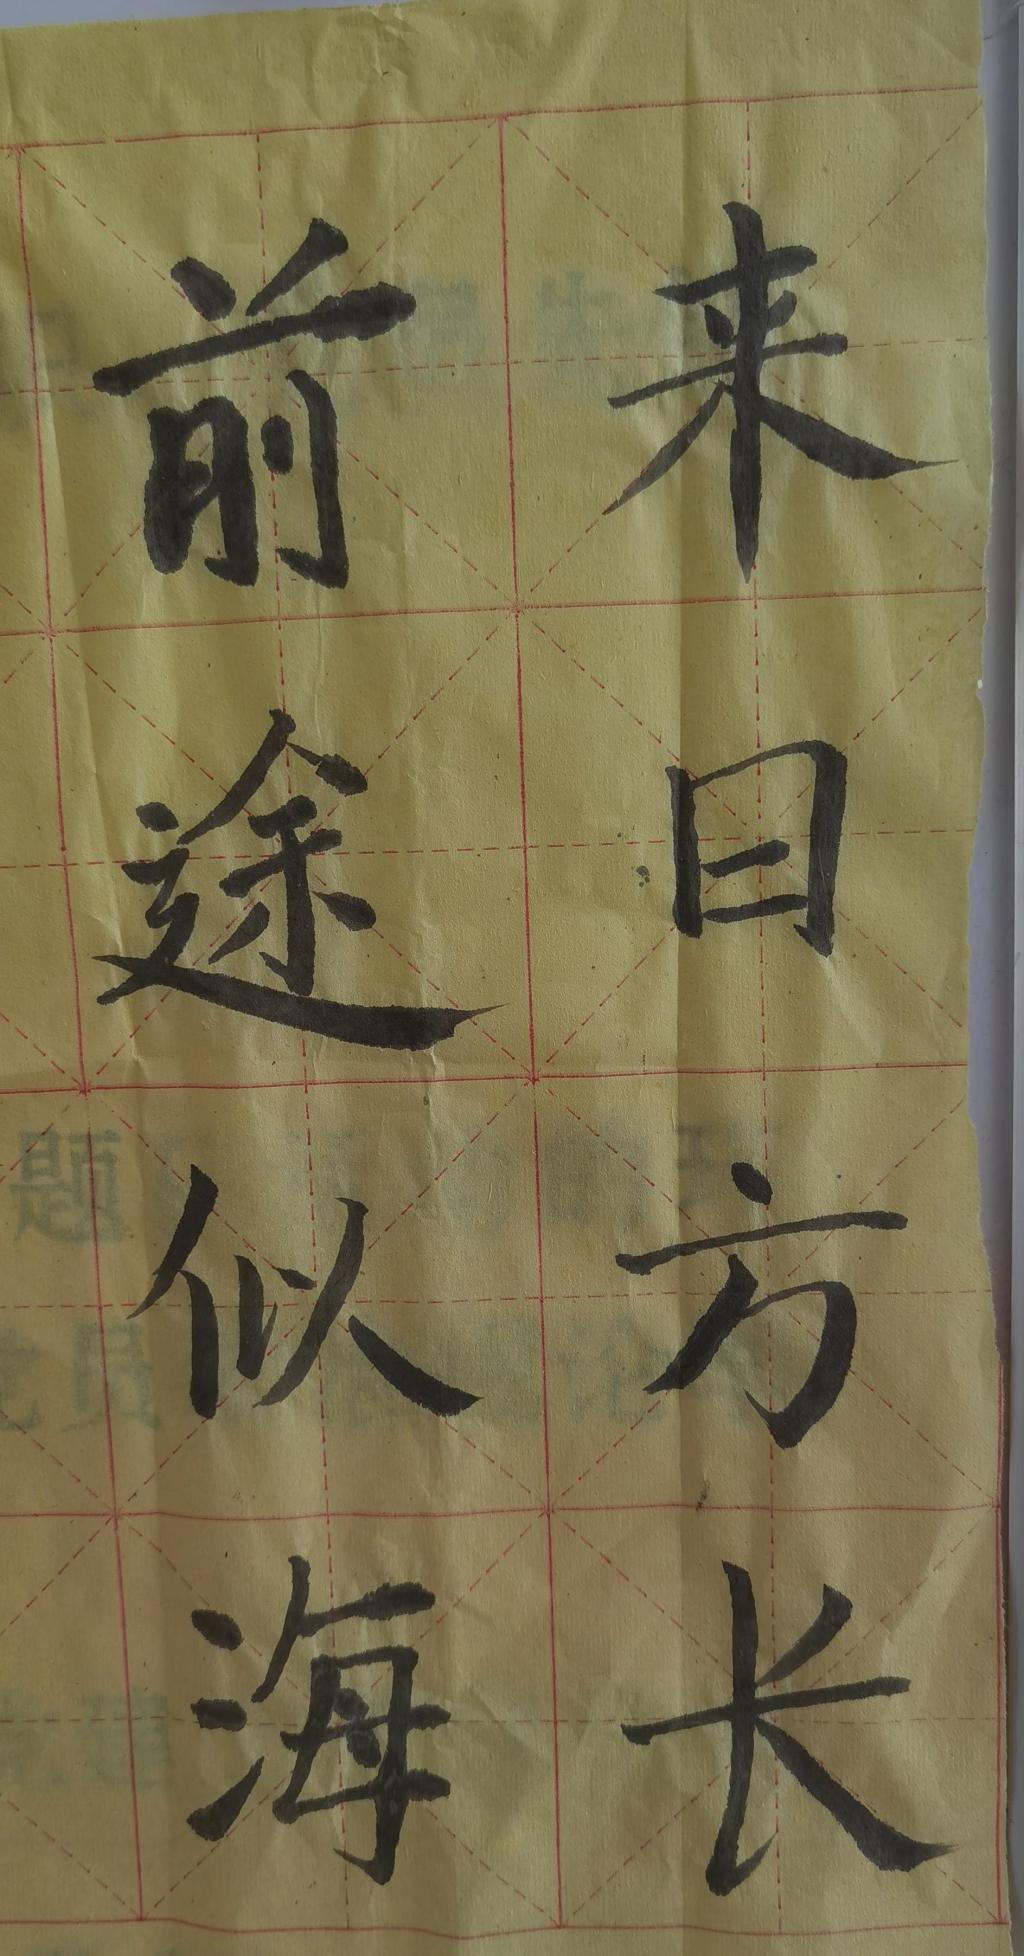 来日方长
前途似海